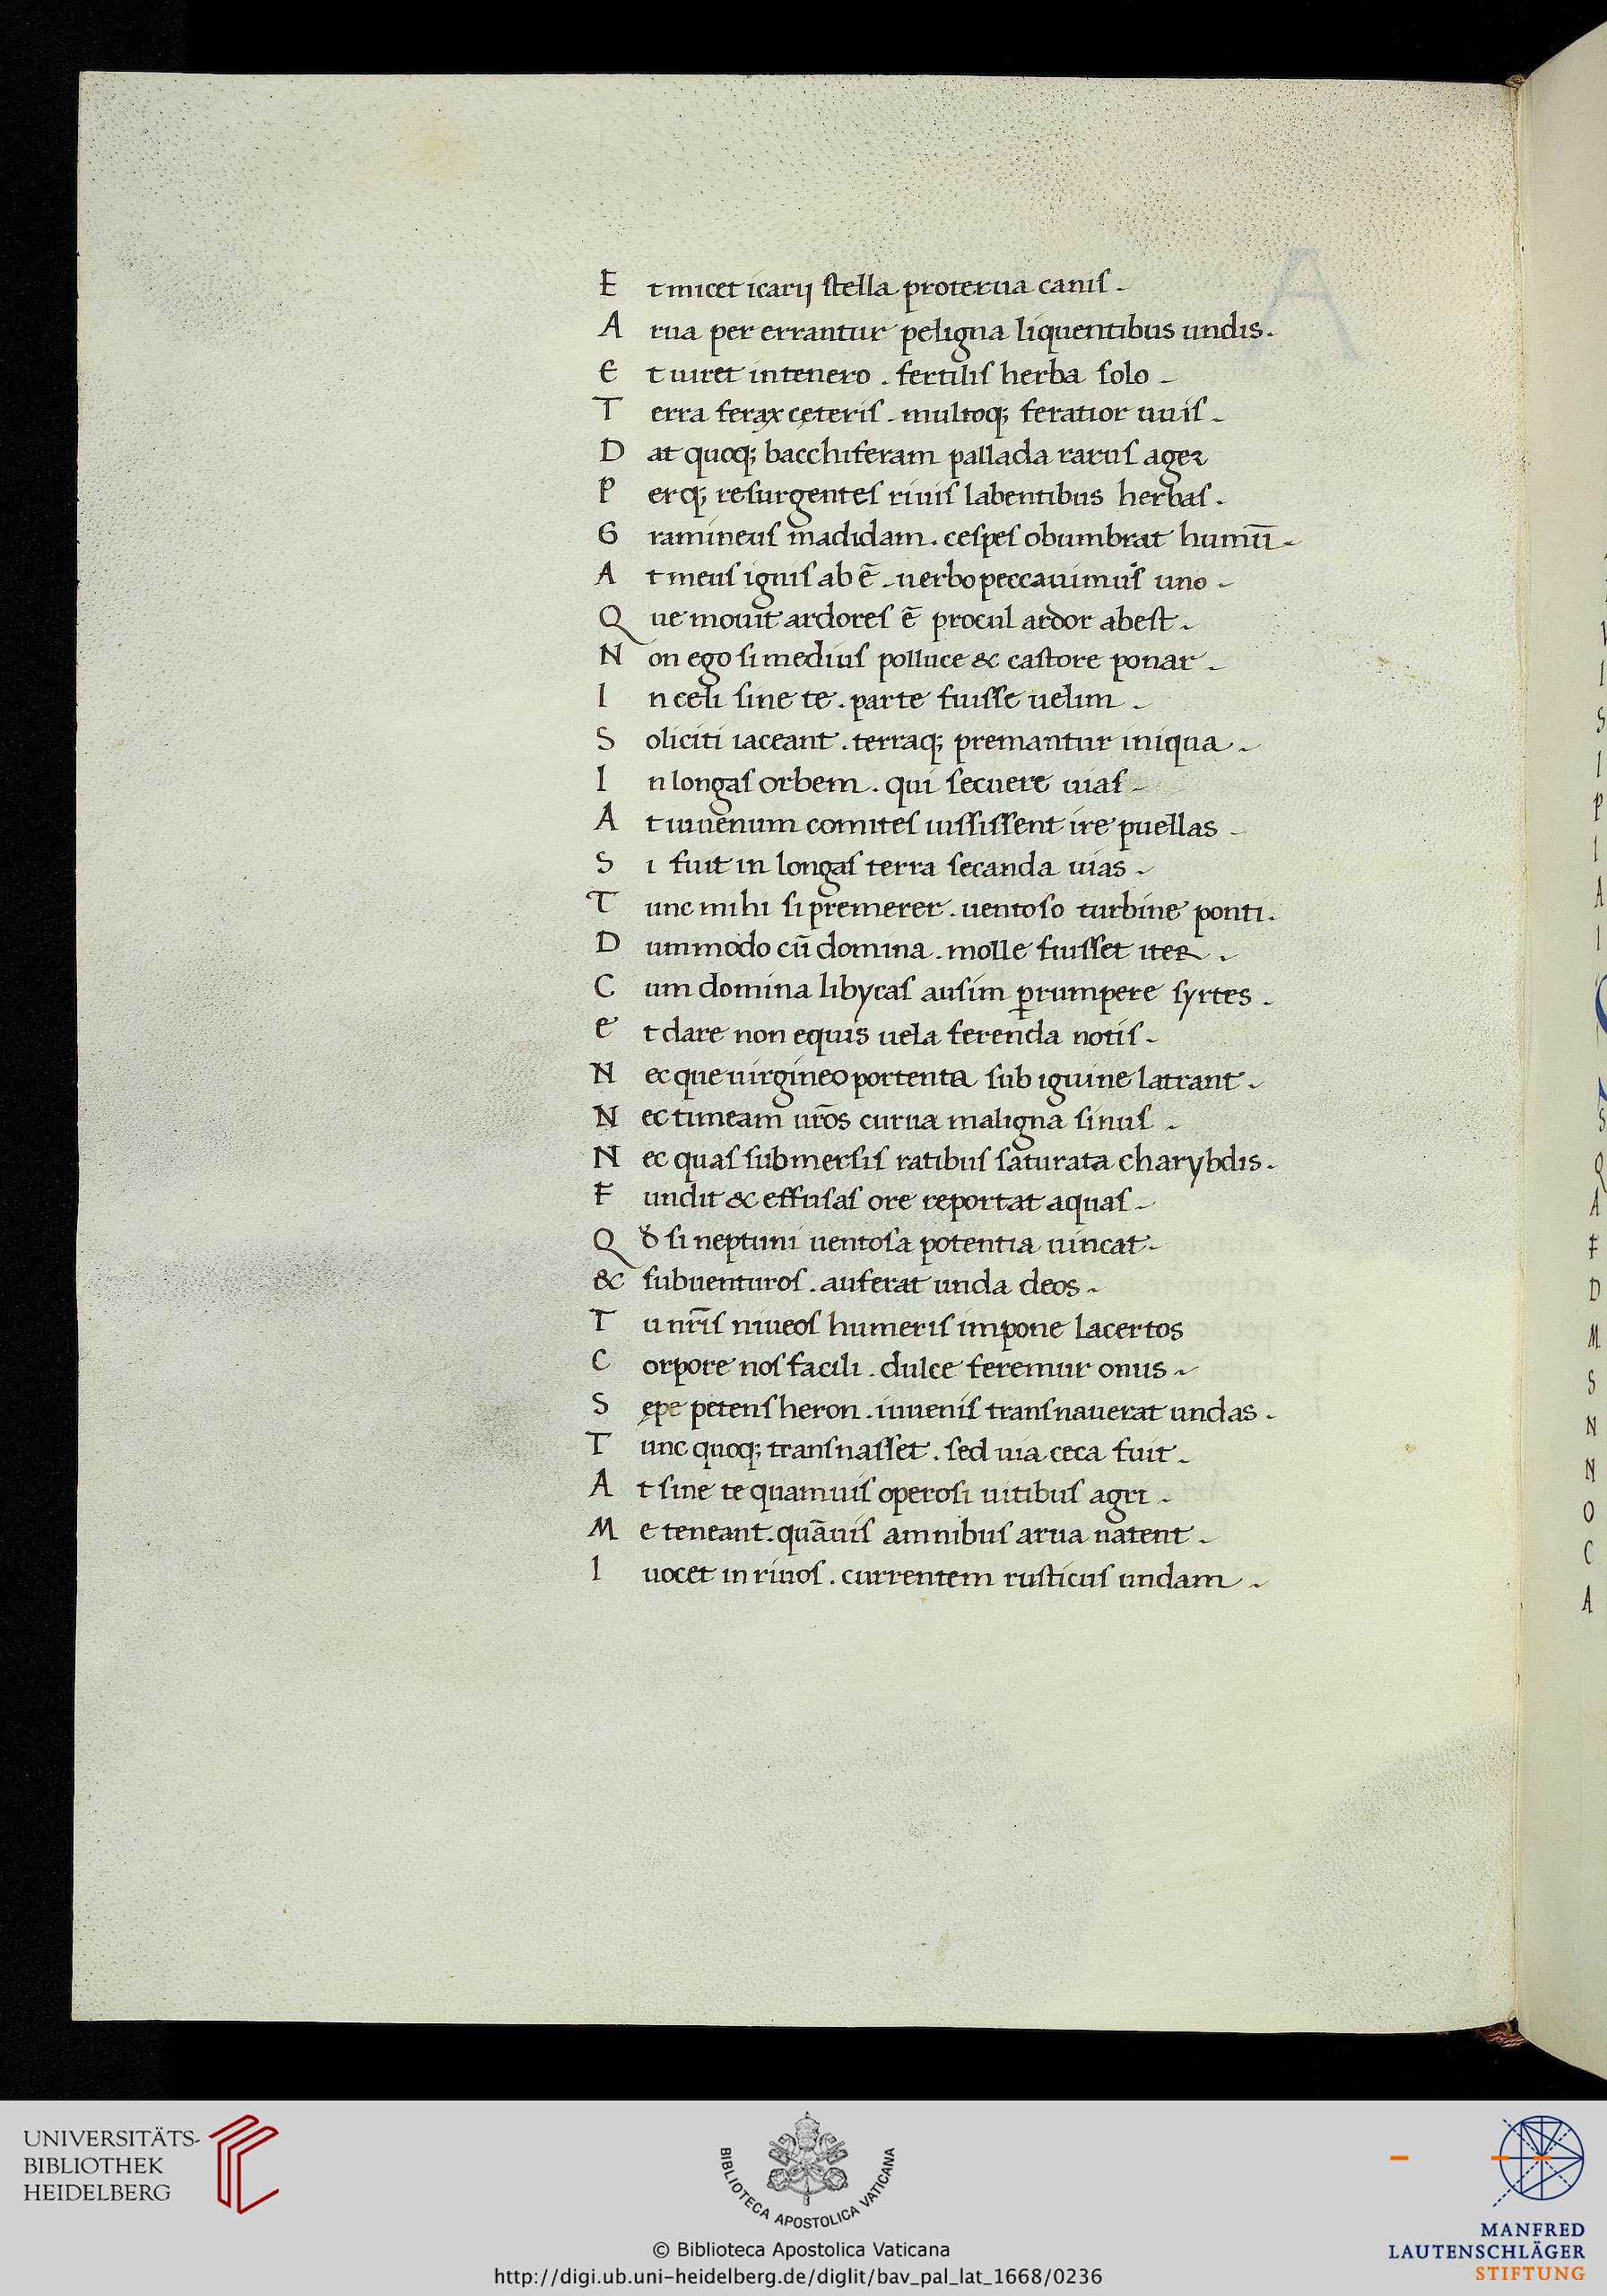 E t micet icarij stella proterua canis .
A rua per errantur peligna liquentibus undis .
E t uiret in tenero . fertilis herba solo .
T erra ferax cęteris . multoq; feratior uuis .
D at quoq; bacchiferam pallada rarus ager
P erq; resurgentes riuis labentibus herbas .
G ramineus madidam . cespes obumbrat humū .
A t meus ignis ab ē . uerbo peccauimus uno .
Q ue mouit ardores ē procul ardor abest .
N on ego si medius polluce & castore ponar .
I n celi sine te . parte fuisse uelim .
S oliciti iaceant . terraq; premantur iniqua .
I n longas orbem . qui secuere uias .
A t iuuenum comites iussissent ire puellas .
S i fuit in longas terra secanda uias .
T unc mihi si premerer . uentoso turbine ponti .
D ummodo cū domina . molle fuisset iter .
C um domina libycas ausim ꝑrumpere syrtes .
E t dare non equis uela ferenda notis .
N ec que uirgineo portenta sub iguine latrant .
N ec timeam ur̄os curua maligna sinus .
N ec quas submersis ratibus saturata charybdis .
F undit & effusas ore reportat aquas .
Q đ si neptuni uentosa potentia uincat .
& subuenturos . auferat unda deos .
T u nr̄is niueos humeris impone lacertos
C orpore nos facili . dulce feremur onus .
S ępe petens heron . iuuenis transnauerat undas .
T unc quoq; transnasset . sed uia ceca fuit .
A t sine te quamuis operosi uitibus agri .
M e teneant . quāuis amnibus arua natent .
I uocet in riuos . currentem rusticus undam .
UNIVERSITÄTS-
BIBLIOTHEK
HEIDELBERG
BIBLIOTECA APOSTOLICA VATICANA
© Biblioteca Apostolica Vaticana
http://digi.ub.uni-heidelberg.de/diglit/bav_pal_lat_1668/0236
MANFRED
LAUTENSCHLÄGER
STIFTUNG